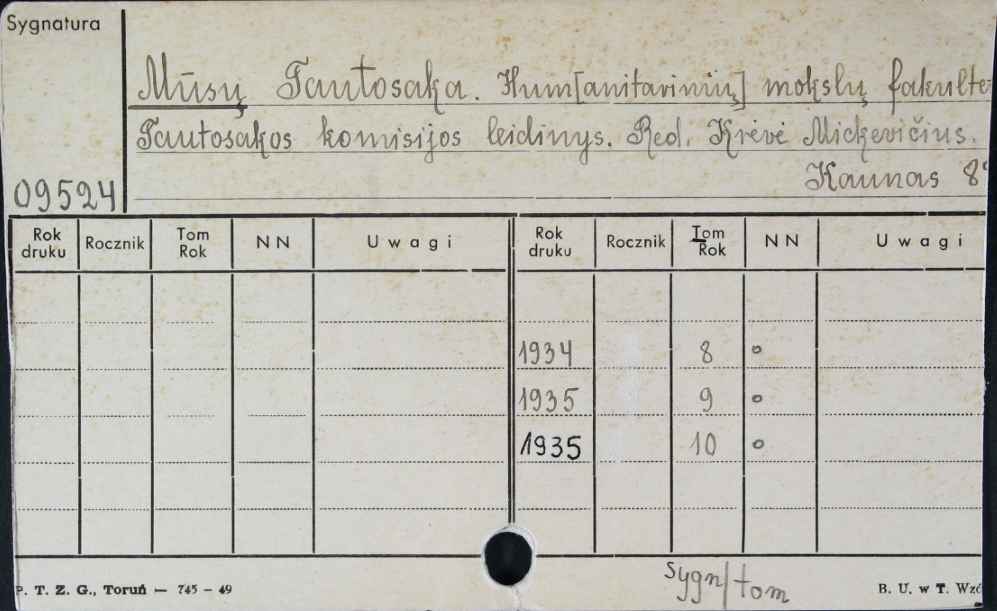 Sygnatura
Mūsų Tautosaka. Hum[anitarinių] mokslų fakulte
Tautosakos komisijos leidinys. Red. Krėvė Mickevičius.
Kaunas 8°
09524
Rok druku Rocznik Tom Rok NN Uwagi Rok druku Rocznik Tom Rok NN Uwagi
1934 8 o
1935 9 o
1935 10 o
sygn/tom
P. T. Z. G., Toruń — 745 — 49
B. U. w T. Wzó